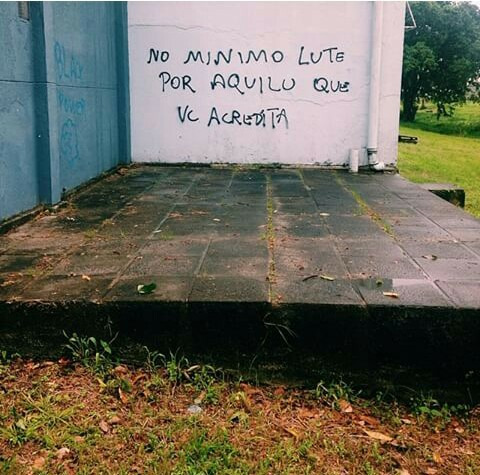 NO MINIMO LUTE
POR AQUILO QUE
VC ACREDITA